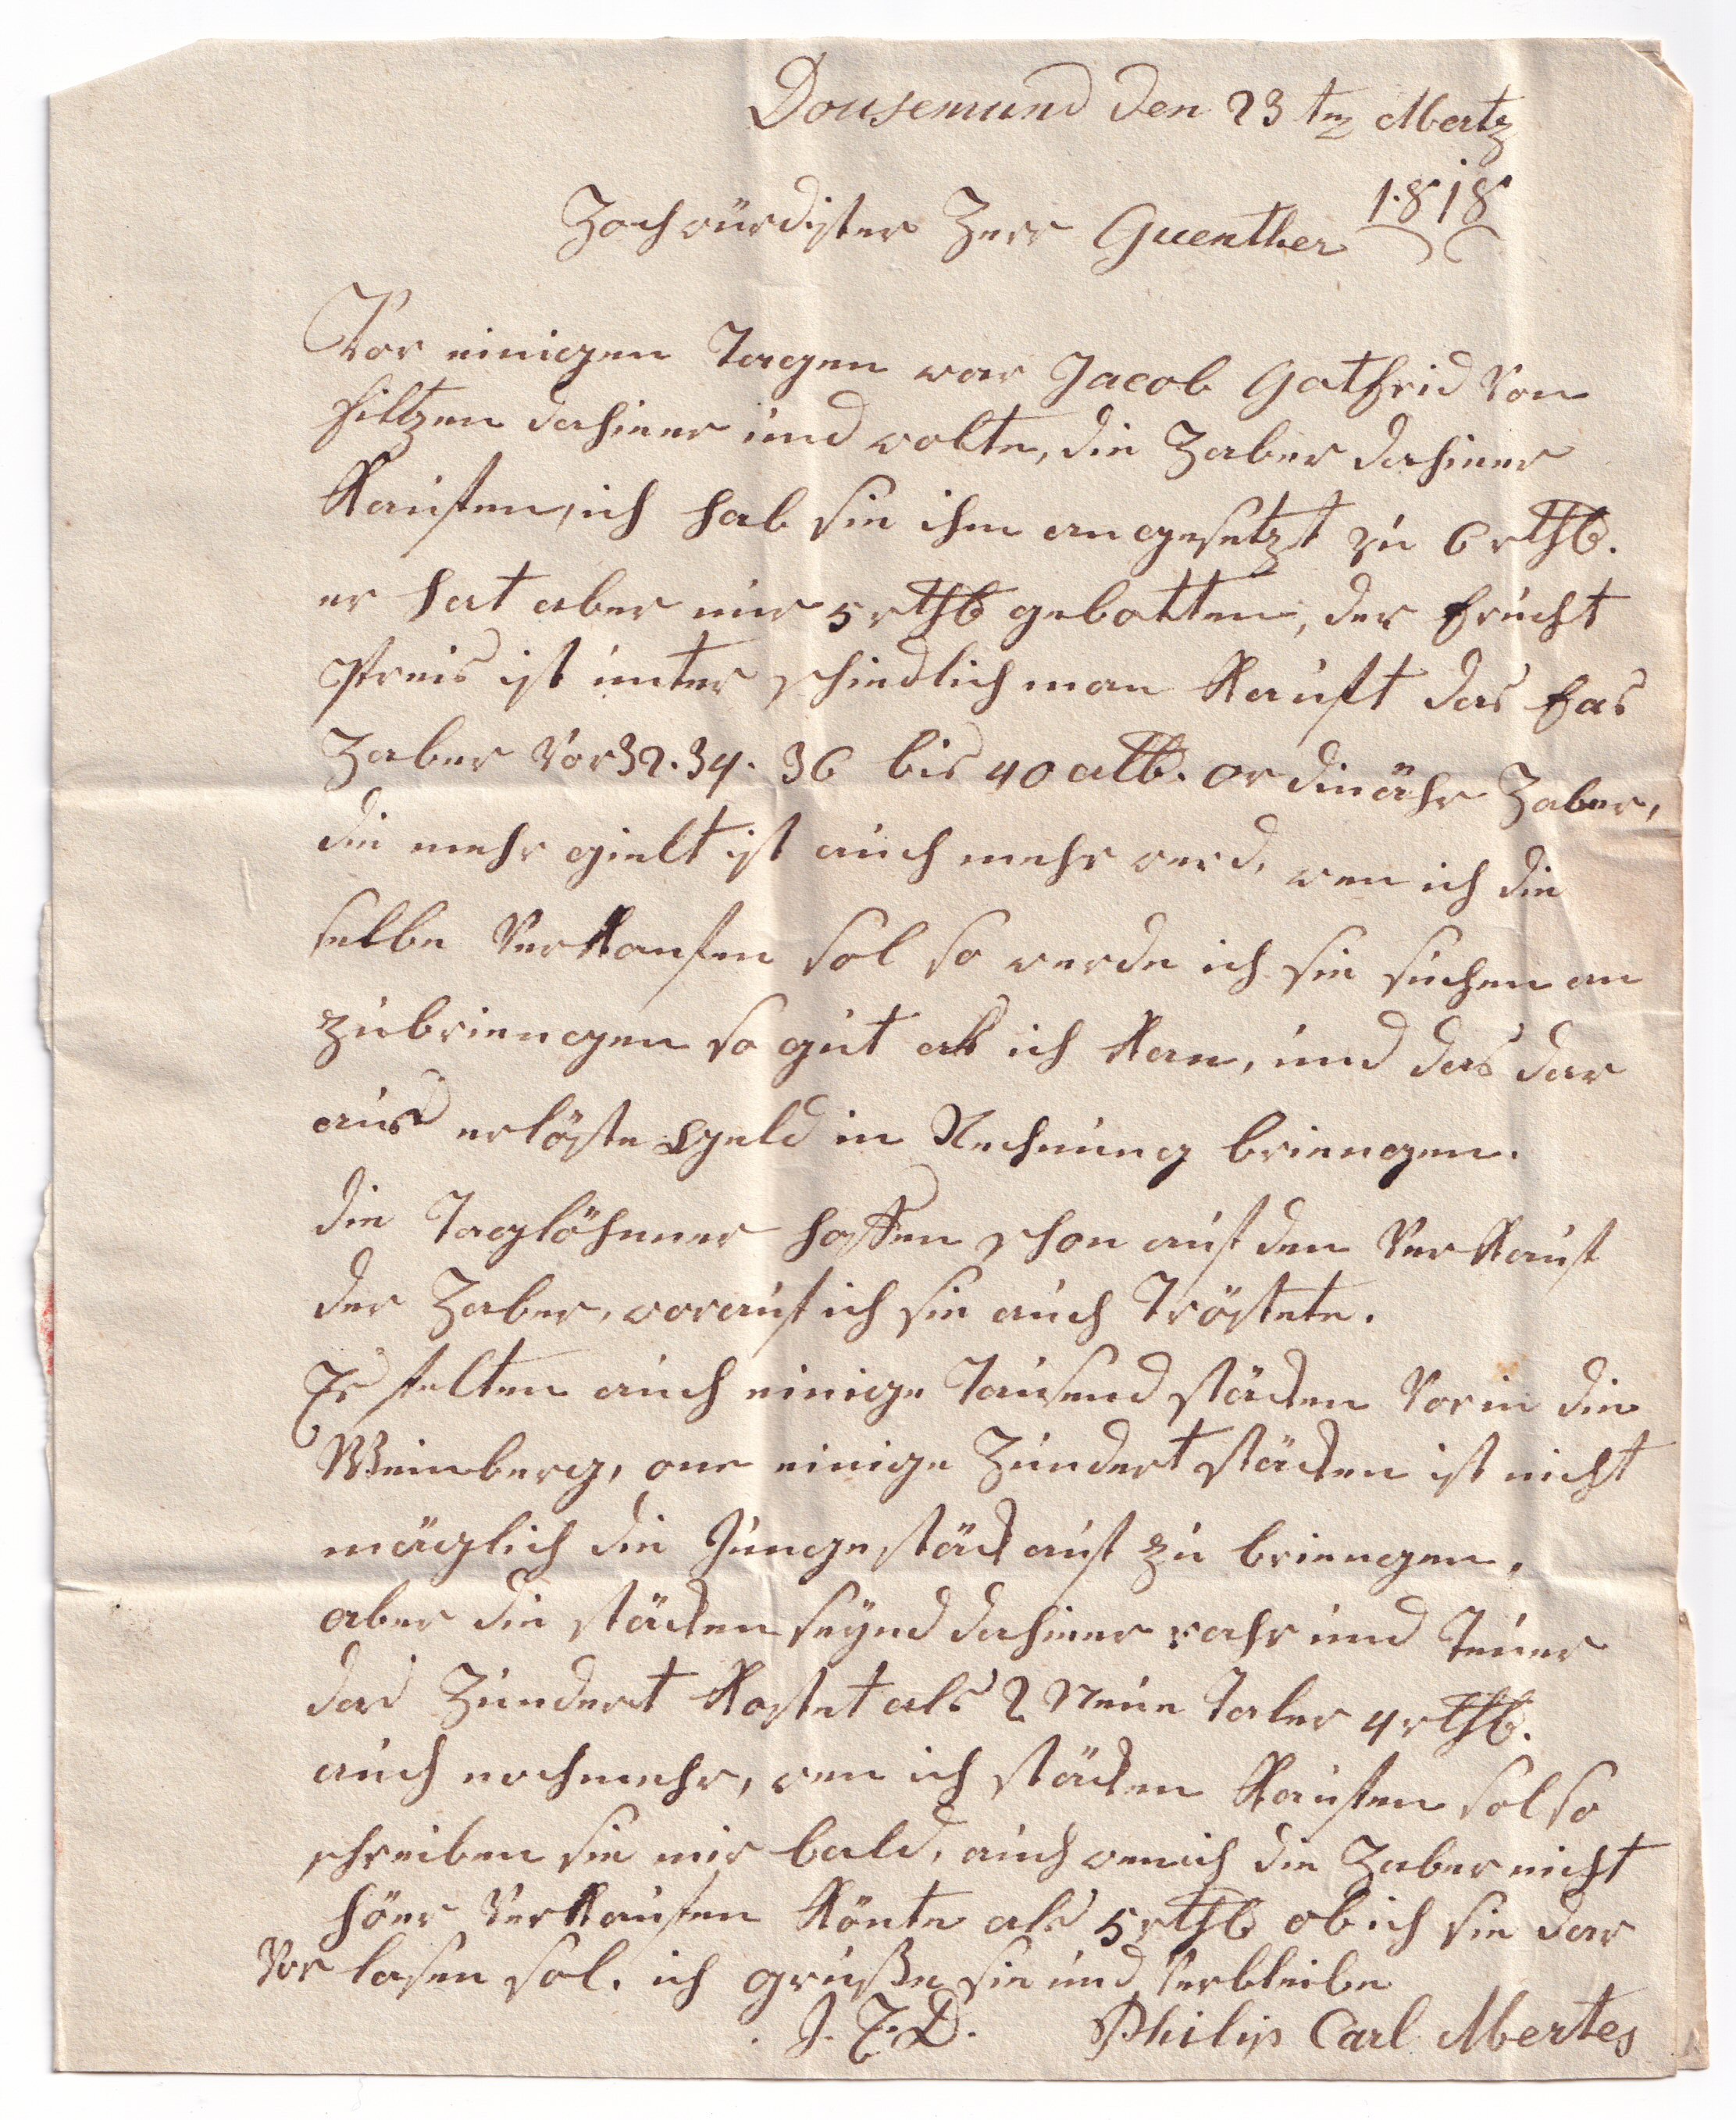 Dousemund den 23 ten Mertz
1818
Hochwürdister Herr Guenther
Vor einigen Tagen war Jacob Gotfrid von
filtzen dahier und wolte, die Haber dahier
Kaufen, ich hab sie ihm angesetzt zu 6 rthl.
er hat aber nur 5 rthl gebotten, der frucht
Preis ist unter schiedlich man Kauft das fas
Haber vor 32. 34. 36 bis 40 alb. ordinähr Haber,
die mehr gielt ist auch mehr werd, wen ich die
selbe Verkaufen sol so werde ich sie suchen an
zubriengen so gut als ich Kan, und das dar
aus erlöste geld in Rechnung briengen.
die Taglöhnner hoffen schon auf den Verkauf
der Haber, worauf ich sie auch Tröstete.
Es felten auch einige Tausend städen Vor in die
Weinberg, one einige Hundert städen ist nicht
mäglich die Junge stäck auf zu briengen,
aber die städen seynd dahier rahr und Teuer
das Hundert Kostet als 2 Neue Taler 4 rthl.
auch noch mehr, wen ich städen Kaufen sol so
schreiben sie mir bald, auch wen ich die Haber nicht
höer Verkaufen Könte als 5 rthl ob ich sie dar
Vor lasen sol. ich grüße sie und Verbleibe
J. E. D. Philip Carl Mertes